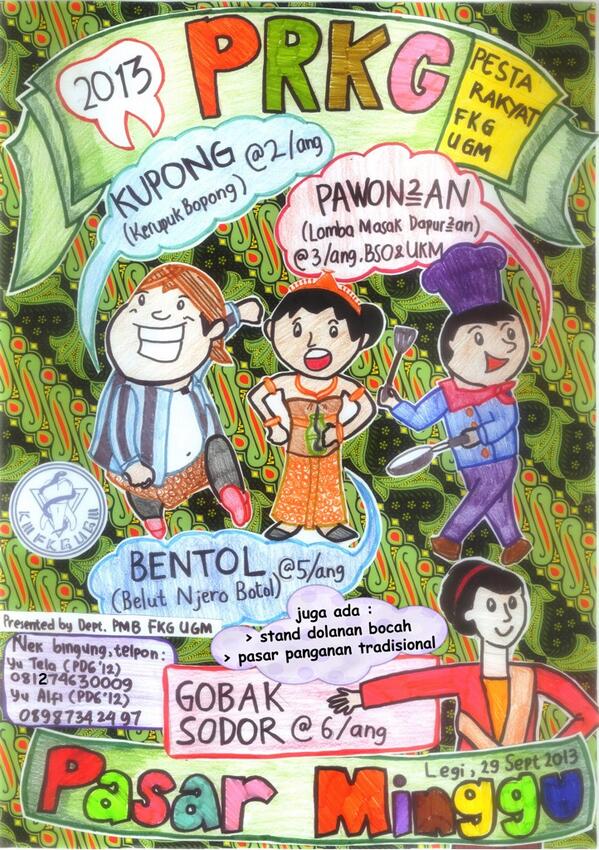 2013
PRKG
PESTA
RAKYAT
FKG
UGM
KUPONG @2/ang
(Kerupuk Bopong)
PAWON2AN
(Lomba Masak Dapur2an)
@3/ang.BSO&UKM
KM FKG UGM
BENTOL @5/ang
(Belut Njero Botol)
juga ada :
> stand dolanan bocah
> pasar panganan tradisional
Presented by Dept. PMB FKG UGM
Nek bingung, telpon:
Yu Tela (PDG'12)
081274630009
Yu Alfi (PDG'12)
08987343497
GOBAK
SODOR @ 6/ang
Legi, 29 Sept 2013
Pasar Minggu